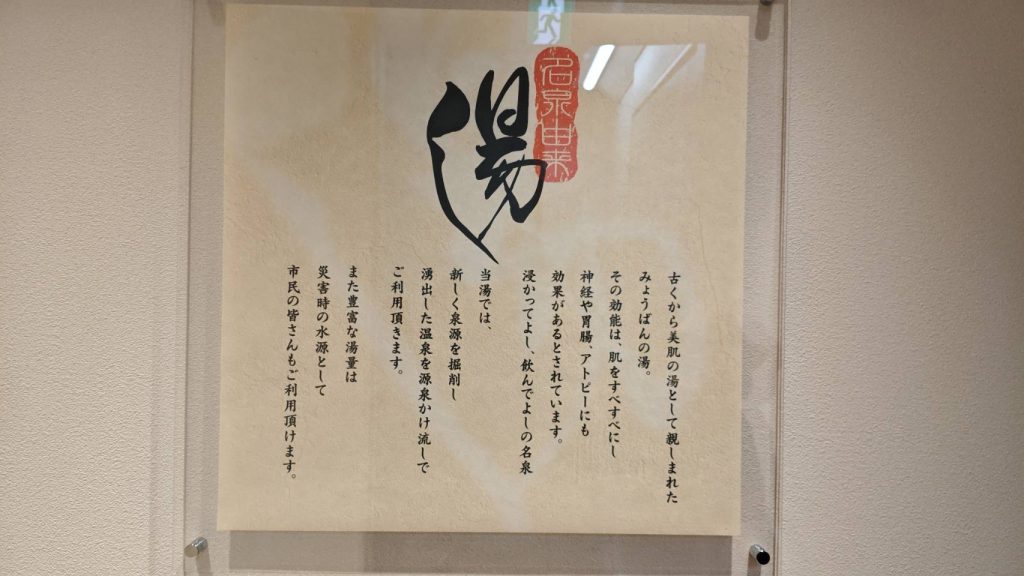 湯
名泉由来
古くから美肌の湯として親しまれた
みょうばんの湯。
その効能は、肌をすべすべにし
神経や胃腸、アトピーにも
効果があるとされています。
浸かってよし、飲んでよしの名泉
当湯では、
新しく泉源を掘削し
湧出した温泉を源泉かけ流しで
ご利用頂きます。
また豊富な湯量は
災害時の水源として
市民の皆さんもご利用頂けます。